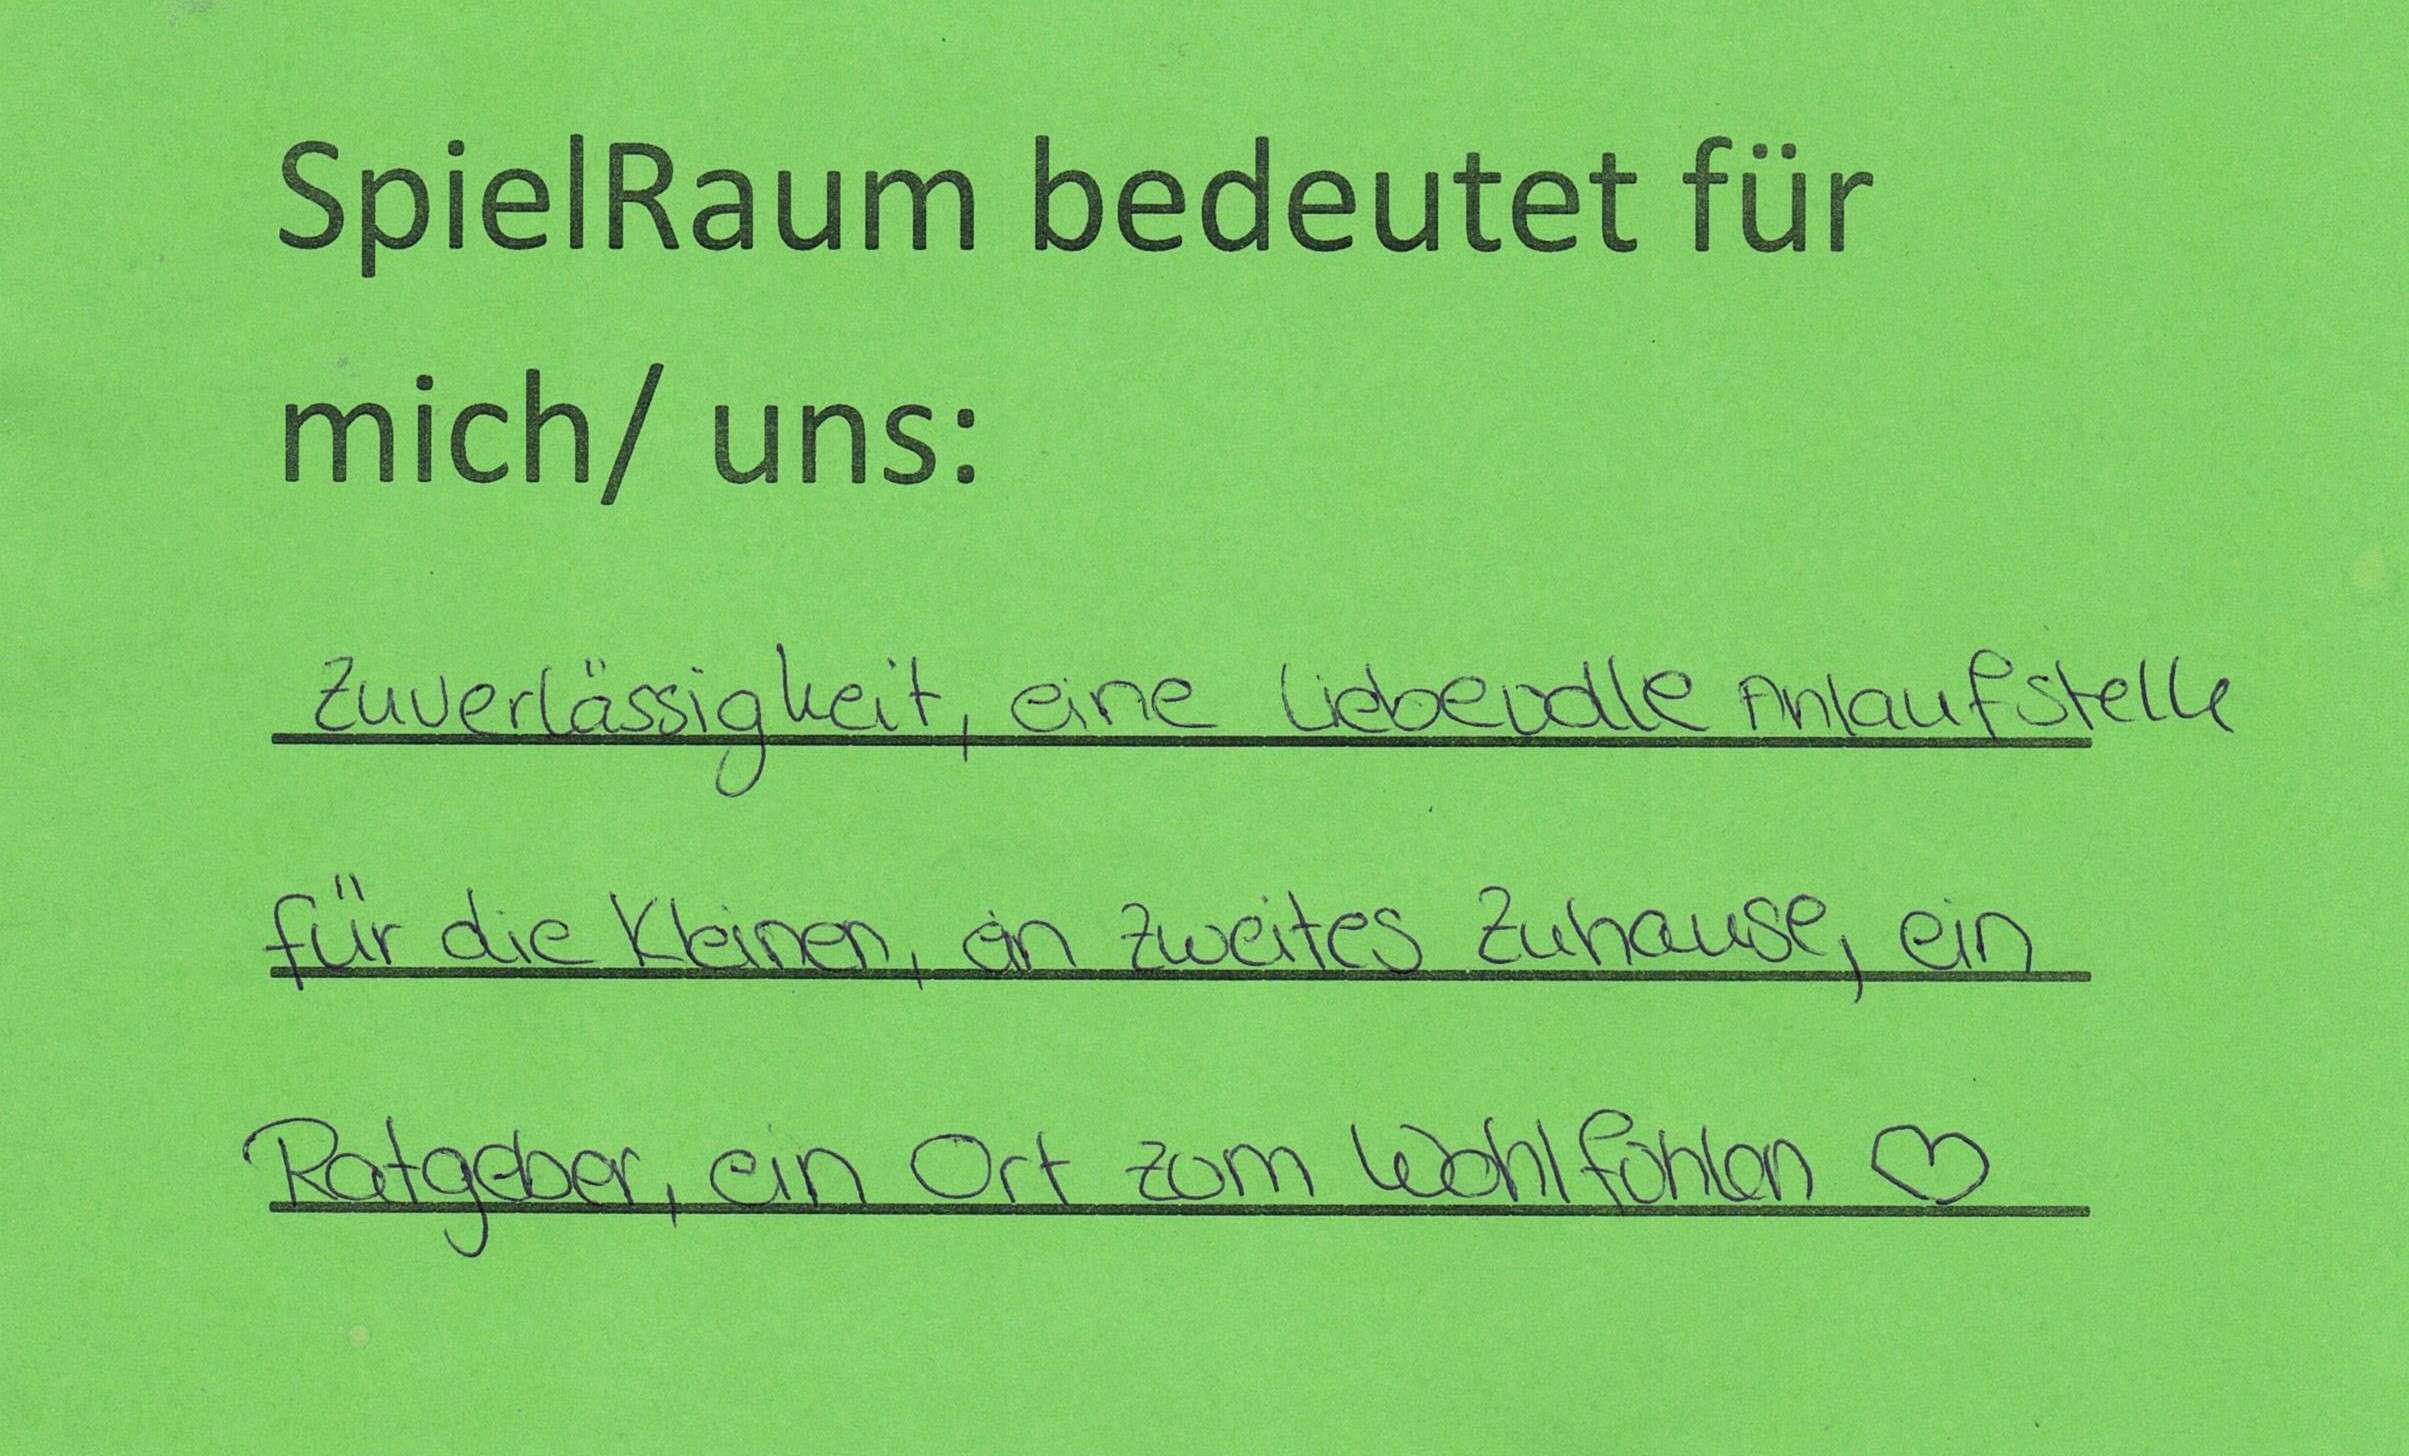 SpielRaum bedeutet für
mich/ uns:
Zuverlässigkeit, eine liebevolle Anlaufstelle
für die Kleinen, ein zweites Zuhause, ein
Ratgeber, ein Ort zum Wohlfühlen ♡